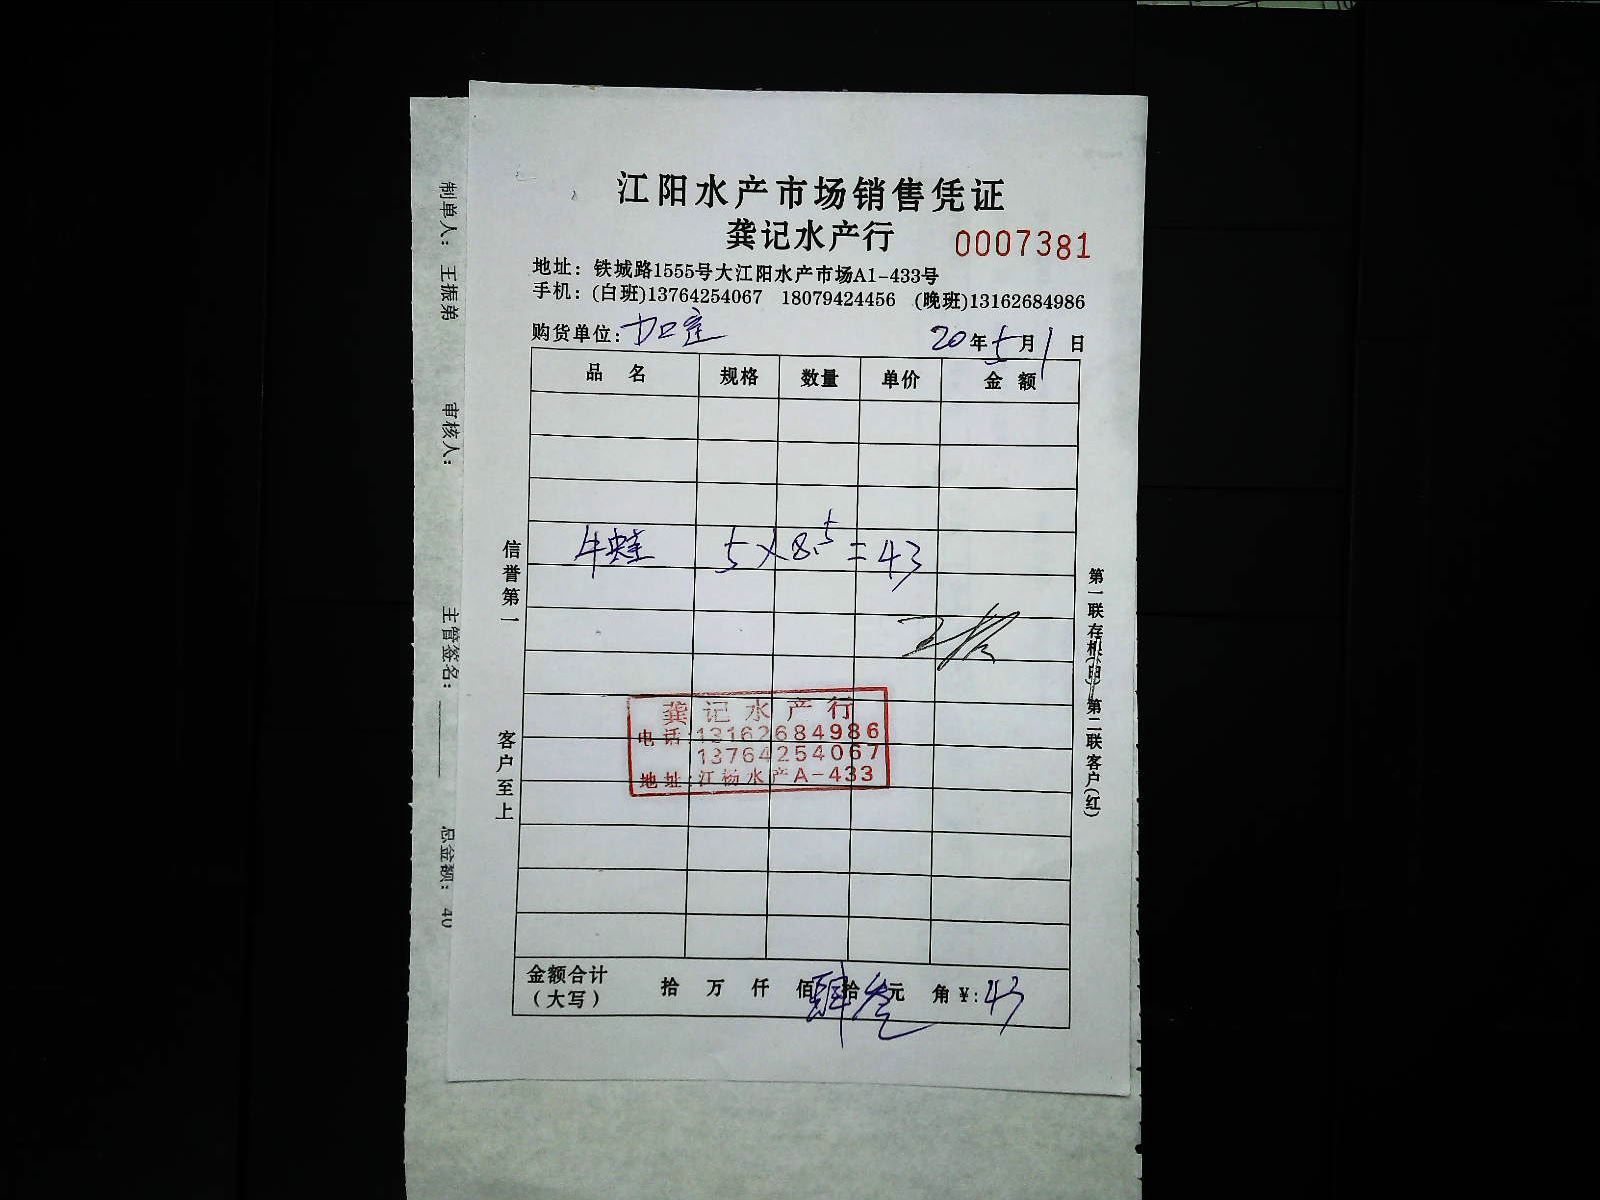 江阳水产市场销售凭证
龚记水产行 0007381
地址：铁城路1555号大江阳水产市场A1-433号
手机：(白班)13764254067 18079424456 (晚班)13162684986
购货单位：加定 20年5月1日
品 名 规格 数量 单价 金 额
牛蛙 5×8.5=43
龚记水产行
电话：13162684986
13764254067
地址：江杨水产A-433
金额合计（大写） 拾 万 仟 佰 肆 拾 叁 元 角 ¥：43
信誉第一 客户至上
第一联存根(白) 第二联客户(红)
制单人： 王振弟 审核人： 主管签名： 总金额： 40